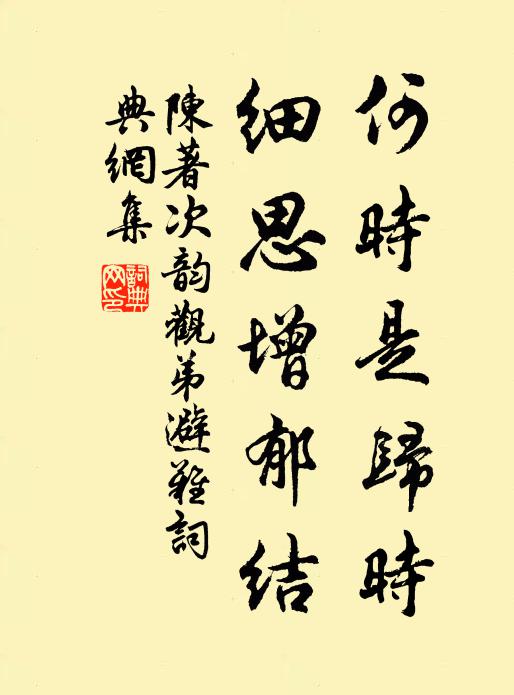 何時是歸時
細思增郁结
陳著次韵觀弟避難詞
典網集
詞典網印